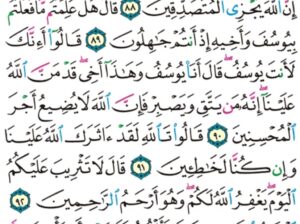 إِنَّ ٱللَّهَ يَجْزِى ٱلْمُتَصَدِّقِينَ ٨٨ قَالَ هَلْ عَلِمْتُم مَّا فَعَلْتُم
بِيُوسُفَ وَأَخِيهِ إِذْ أَنتُمْ جَٰهِلُونَ ٨٩ قَالُوٓا۟ أَءِنَّكَ
لَأَنتَ يُوسُفُ قَالَ أَنَا۠ يُوسُفُ وَهَٰذَآ أَخِى قَدْ مَنَّ ٱللَّهُ
عَلَيْنَآ إِنَّهُۥ مَن يَتَّقِ وَيَصْبِرْ فَإِنَّ ٱللَّهَ لَا يُضِيعُ أَجْرَ
ٱلْمُحْسِنِينَ ٩٠ قَالُوا۟ تَٱللَّهِ لَقَدْ ءَاثَرَكَ ٱللَّهُ عَلَيْنَا
وَإِن كُنَّا لَخَٰطِـِٔينَ ٩١ قَالَ لَا تَثْرِيبَ عَلَيْكُمُ
ٱلْيَوْمَ يَغْفِرُ ٱللَّهُ لَكُمْ وَهُوَ أَرْحَمُ ٱلرَّٰحِمِينَ ٩٢